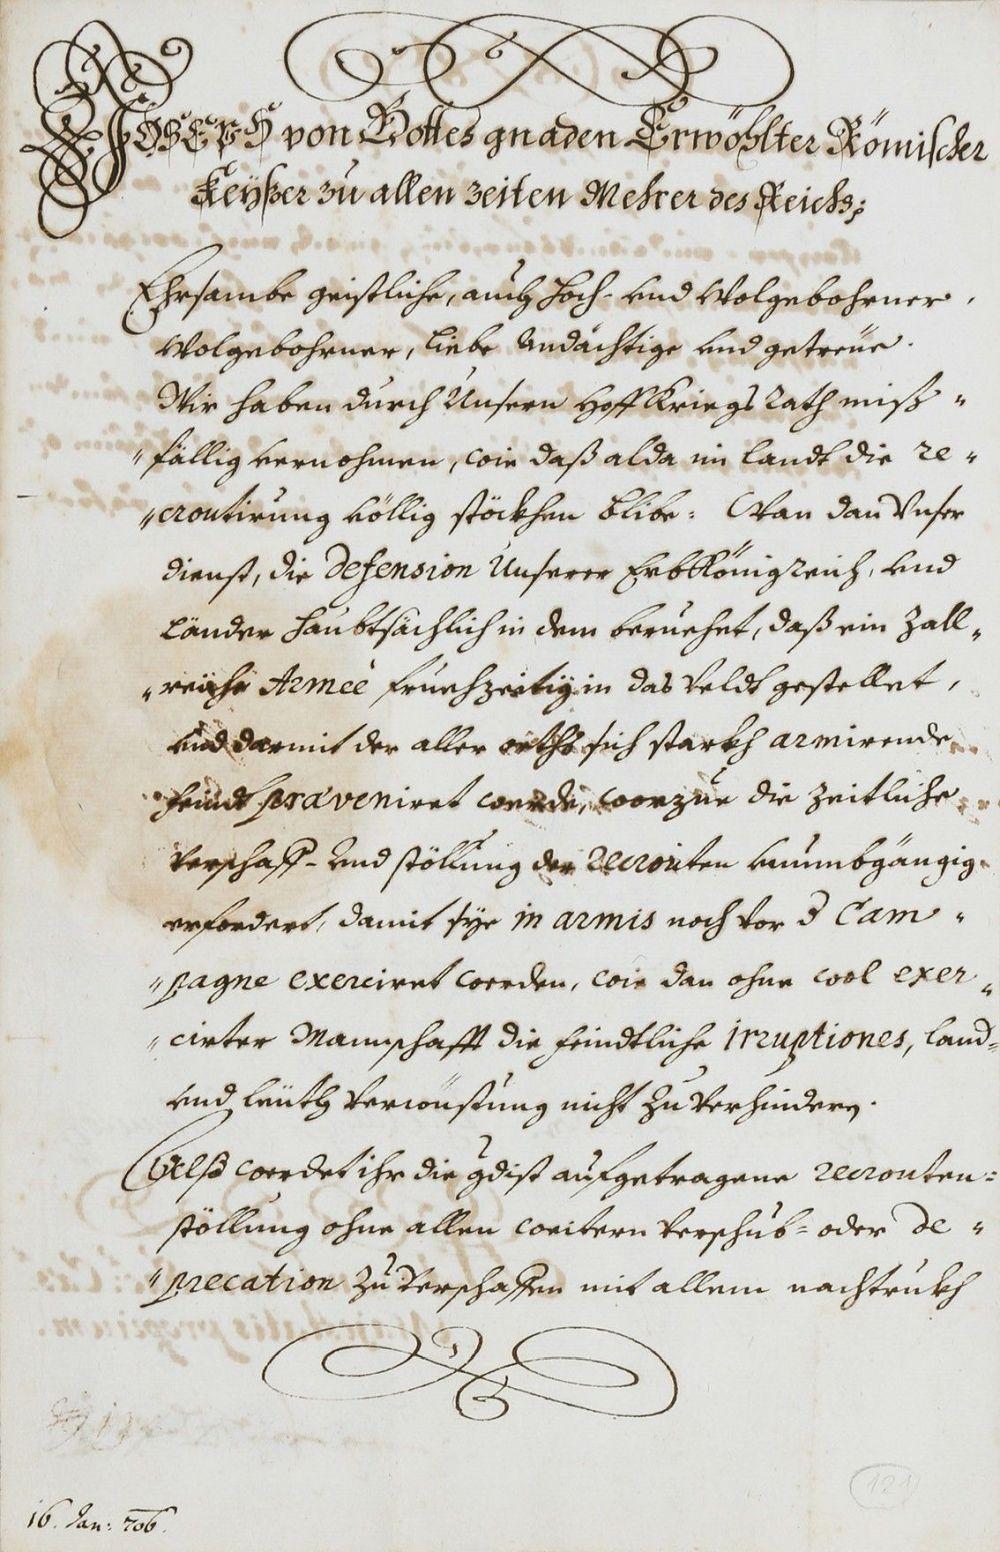 JOSEPH von Gottes gnaden Erwöhlter Römischer
Keyßer zu allen zeiten Mehrer des Reichs;
Ehrsambe geistliche, auch Hoch- und Wolgebohrner,
Wolgebohrner, liebe Andächtige und getreüe.
Wir haben durch Unsern HoffKriegsRath miß„
„fällig vernohmen, wie daß alda im landt die re„
„croutirung völlig stöckhen blibe: Wan dan Unser
dienst, die Defension Unserer ErbKönigreich, und
Länder Haubtsächlich in dem beruehet, daß ein Zall„
„reiche Armeè fruehzeitig in das Veldt gestellet,
und darmit der aller orths sich starkh armirende
feindt præveniret werde, worzue die zeitliche
Verschaff- und stöllung der Recrouten unumbgängig
erfordert, damit sye in armis noch vor d Cam„
„pagne exerciret werden, wie dan ohne wol exer„
„cirter Mannschafft die feindtliche irruptiones, land=
und leüth Verwüstung nicht zu verhindern.
Alß werdet ihr die gdist aufgetragene recrouten=
stöllung ohne allen weitern Verschub= oder de„
„precation zu verschaffen mit allem nachtrukh
16. Jan: 706.
121